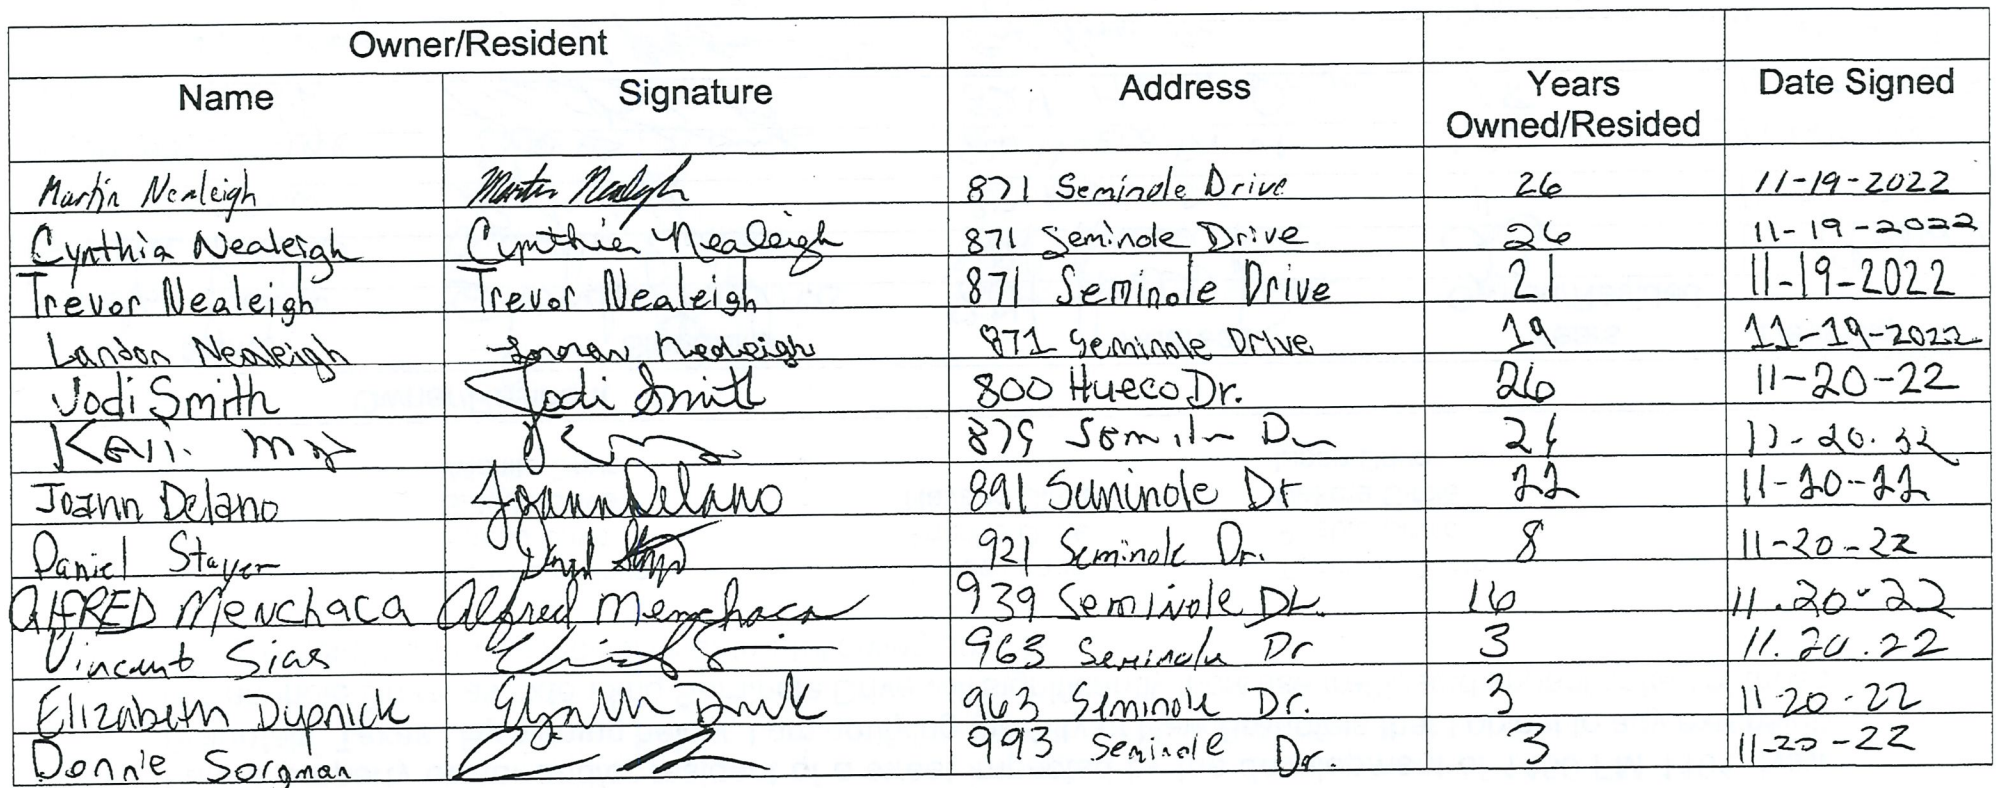 Owner/Resident
Name Signature Address Years Owned/Resided Date Signed
Martin Nealeigh Martin Nealeigh 871 Seminole Drive 26 11-19-2022
Cynthia Nealeigh Cynthia Nealeigh 871 Seminole Drive 26 11-19-2022
Trevor Nealeigh Trevor Nealeigh 871 Seminole Drive 21 11-19-2022
Landon Nealeigh Landon Nealeigh 871 Seminole Drive 19 11-19-2022
Jodi Smith Jodi Smith 800 Hueco Dr. 26 11-20-22
879
Joann Delano Joann Delano 891 Suminole Dr 22 11-20-22
Daniel Stayer 921 Seminole Dr. 8 11-20-22
AlFRED Menchaca Alfred Menchaca 939 Seminole DR. 16 11.20-22
Sias 963 Seminole Dr 3 11.20.22
Elizabeth Dupnick 963 Seminole Dr. 3 11-20-22
Donnie Sorgman 993 Seminole Dr. 3 11-20-22